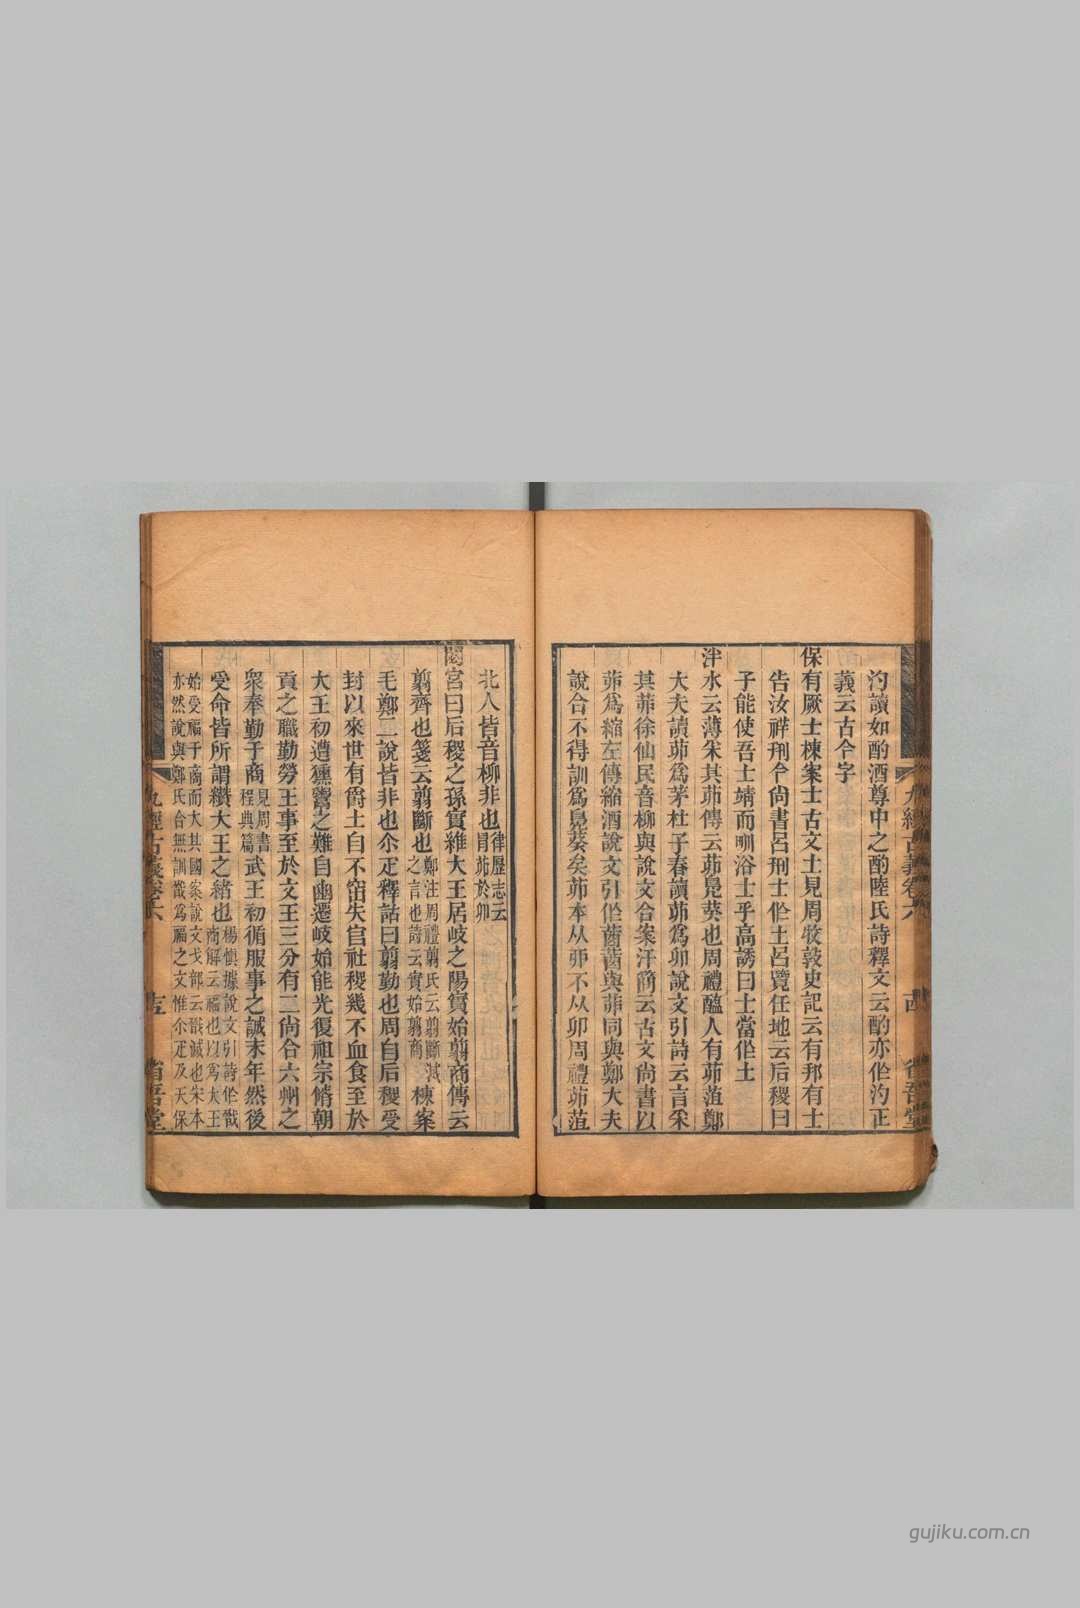 汋讀如酌酒尊中之酌陸氏詩釋文云酌亦作汋正
義云古今字
保有厥士棟案士古文土見周牧敦史記云有邦有士
告汝祥刑今尚書呂刑士作土呂覽任地云后稷曰
子能使吾士靖而甽浴士乎高誘曰士當作土
泮水云薄采其茆傳云茆鳧葵也周禮醢人有茆菹鄭
大夫讀茆爲茅杜子春讀茆爲卯說文引詩云言采
其茆徐仙民音柳與說文合案汗簡云古文尚書以
茆爲縮左傳縮酒說文引作莤莤與茆同與鄭大夫
說合不得訓爲鳧葵矣茆本从丣不从卯周禮茆菹
九經古義卷六
古
省吾堂
北人皆音柳非也律歷志云
冒茆於卯
閟宮曰后稷之孫實維大王居岐之陽實始翦商傳云
翦齊也箋云翦斷也鄭注周禮翦氏云翦斷滅
之言也詩云實始翦商棟案
毛鄭二說皆非也尒疋釋詁曰翦勤也周自后稷受
封以來世有爵土自不窋失官社稷幾不血食至於
大王初遭獯鬻之難自豳遷岐始能光復祖宗脩朝
貢之職勤勞王事至於文王三分有二尚合六州之
衆奉勤于商見周書
程典篇武王初循服事之誠末年然後
受命皆所謂纘大王之緒也楊慎據說文引詩作戩
商解云福也以爲大王
始受福于商而大其國案說文戈部云戩滅也宋本
亦然說與鄭氏合無訓戩爲福之文惟尒疋及天保
九經古義卷六
省吾堂
gujiku.com.cn